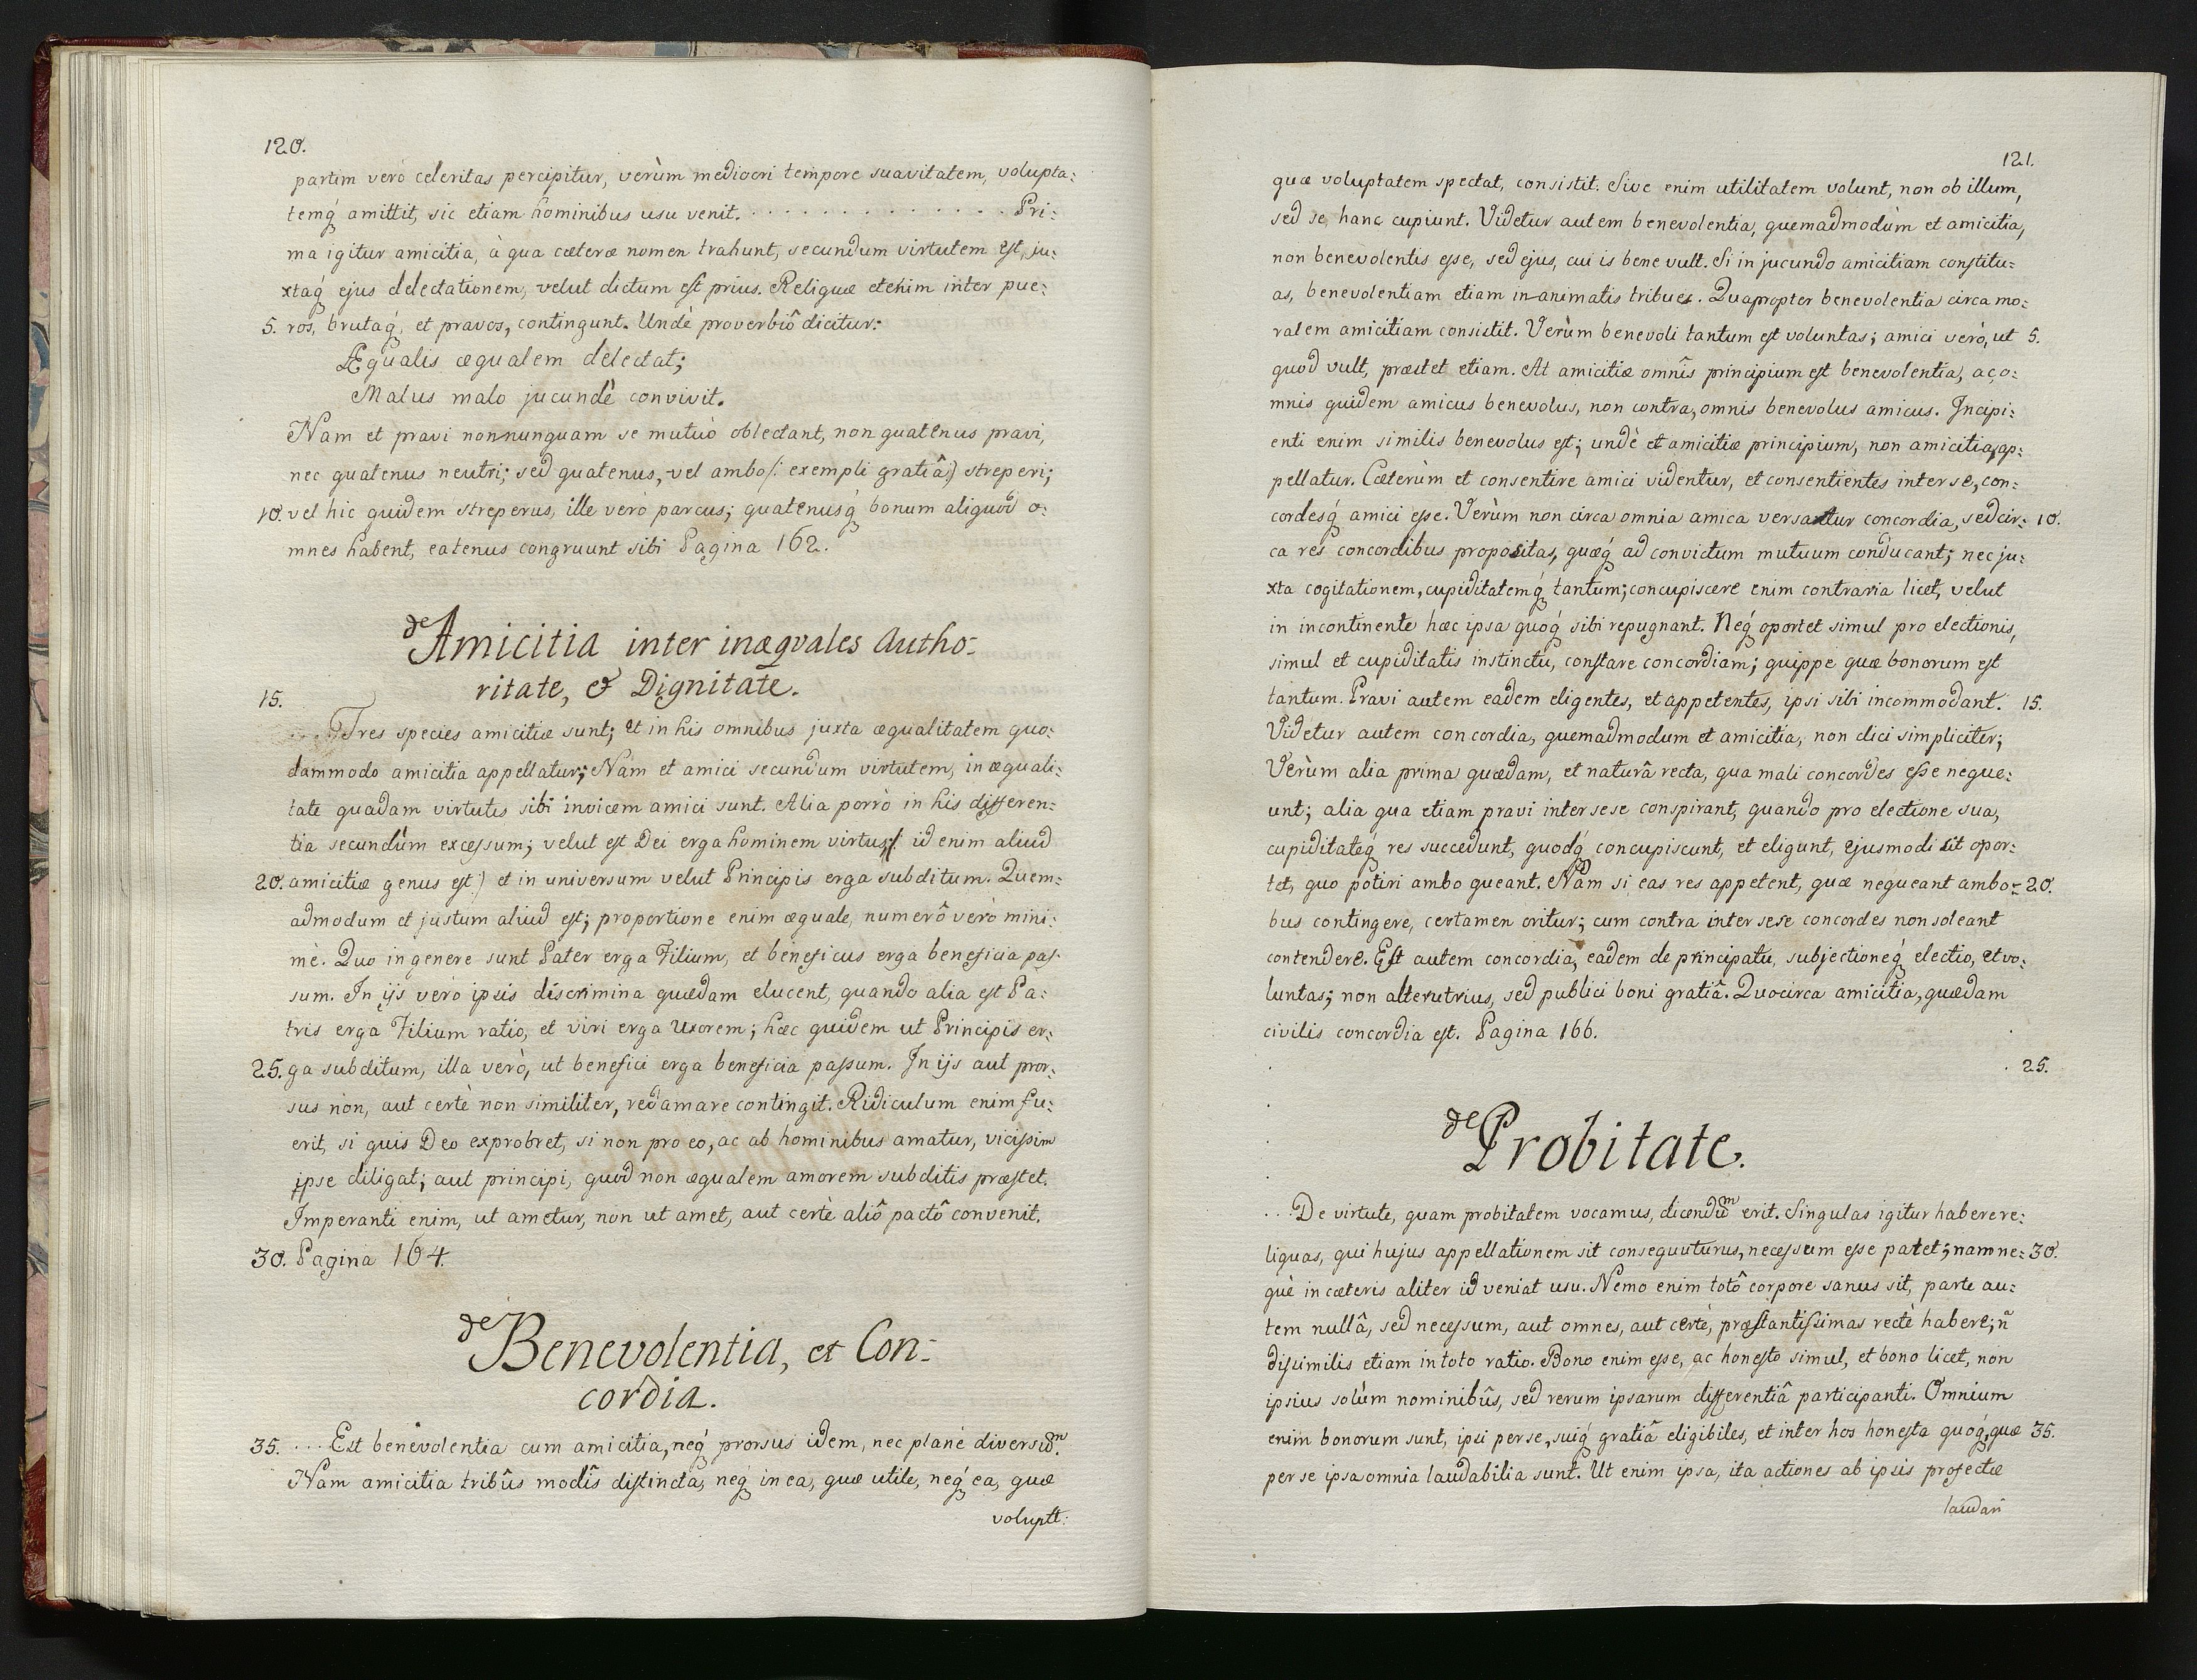 120.
partim verò celeritas percipitur, verùm mediocri tempore suavitatem, volupta:
temq́ amittit, sic etiam hominibus usu venit. . . . . . . . . . . . . . . . Pri:
ma igitur amicitia, à qua cæteræ nomen trahunt, secundum virtutem est, ju:
xtaq́ ejus delectationem, velut dictum est prius. Reliquæ etenim inter pue:
5. ros, brutaq́, et pravos, contingunt. Undè proverbiô dicitur:
Æqualis æqualem delectat;
Malus malo jucundè convivit.
Nam et pravi nonnunquam se mutuò oblectant, non quatenus pravi,
nec quatenus neutri; sed quatenus, vel ambo (: exempli gratiâ:) streperi;
10. vel hic quidem streperus, ille verò parcus; quatenusq́ bonum aliquod o:
mnes habent, eatenus congruunt sibi Pagina 162.
de Amicitia inter inæquales Autho:
ritate, & Dignitate.
15.
. . . . Tres species amicitiæ sunt; et in his omnibus juxta æqualitatem quo:
dammodo amicitia appellatur; Nam et amici secundum virtutem, in æquali:
tate quadam virtutis sibi invicem amici sunt. Alia porrò in his differen:
tia secundùm excessum; velut est Dei erga hominem virtus (: id enim aliud
20. amicitiæ genus est:) et in universum velut Principis erga subditum. Quem:
admodum et justum aliud est; proportione enim æquale, numerô verò mini:
mè. Quo in genere sunt Pater erga Filium, et beneficus erga beneficia pas:
sum. In ijs verò ipsis discrimina quædam elucent, quando alia est Pa:
tris erga Filium ratio, et viri erga Uxorem; hæc quidem ut Principis er:
25. ga subditum, illa verò, ut benefici erga beneficia passum. In ijs aut pror:
sus non, aut certè non similiter, redamare contingit. Ridiculum enim fu:
erit, si quis Deo exprobret, si non pro eo, ac ab hominibus amatur, vicissim
ipse diligat; aut principi, quod non æqualem amorem subditis præstet.
Imperanti enim, ut ametur, non ut amet, aut certè aliô pactô convenit.
30. Pagina 164.
de Benevolentia, et Con:
cordia.
35. . . . . Est benevolentia cum amicitia, neq́ prorsus idem, nec planè diversum.
Nam amicitia tribûs modîs distincta, neq́ in ea, quæ utile, neq́ ea, quæ
voluptt:
121.
quæ voluptatem spectat, consistit. Sive enim utilitatem volunt, non ob illum,
sed se hanc cupiunt. Videtur autem benevolentia, quemadmodùm et amicitia,
non benevolentis esse, sed ejus, cui is bene vult. Si in jucundo amicitiam constitu:
as, benevolentiam etiam in-animatis tribues. Quapropter benevolentia circa mo:
ralem amicitiam consistit. Verùm benevoli tantum est voluntas; amici verò, ut 5.
quod vult, præstet etiam. At amicitiæ omnîs principium est benevolentia, ac o:
mnis quidem amicus benevolus, non contra, omnis benevolus amicus. Incipi:
enti enim similis benevolus est; undè et amicitiæ principium, non amicitia, ap:
pellatur. Cæterùm et consentire amici videntur, et consentientes inter se, con:
cordesq́ amici esse. Verùm non circa omnia amica versatur concordia, sed cir: 10.
ca res concordibus propositas, quæq́ ad convictum mutuum conducant; nec ju:
xta cogitationem, cupiditatemq́ tantum; concupiscere enim contraria licet, velut
in incontinente hæc ipsa quoq́ sibi repugnant. Neq́ oportet simul pro electionis,
simul et cupiditatis instinctu, constare concordiam; quippe quæ bonorum est
tantum. Pravi autem eadem eligentes, et appetentes, ipsi sibi incommodant. 15.
Videtur autem concordia, quemadmodum et amicitia, non dici simpliciter;
Verùm alia prima quædam, et naturâ recta, qua mali concordes esse neque:
unt; alia qua etiam pravi inter sese conspirant, quando pro electione sua,
cupiditateq́ res succedunt, quodq́ concupiscunt, et eligunt, ejusmodi sit opor:
tet, quo potiri ambo queant. Nam si eas res appetent, quæ nequeant ambo: 20.
bus contingere, certamen oritur; cum contra inter sese concordes non soleant
contendere. Est autem concordia, eadem de principatu, subjectioneq́ electio, et vo:
luntas; non alterutrius, sed publici boni gratiâ. Quocirca amicitia, quædam
civilis concordia est. Pagina 166.
25.
de Probitate.
. . . De virtute, quam probitatem vocamus, dicendum erit. Singulas igitur habere re:
liquas, qui hujus appellationem sit consequuturus, necessum esse patet; nam ne: 30.
què in cæteris aliter id veniat usu. Nemo enim totô corpore sanus sit, parte au:
tem nullâ, sed necessum, aut omnes, aut certè, præstantissimas rectè habere; ñ
dissimilis etiam in toto ratio. Bono enim esse, ac honesto simul, et bono licet, non
ipsius solùm nominibûs, sed rerum ipsarum differentiâ participanti. Omnium
enim bonorum sunt, ipsi per se, suiq́ gratiâ eligibiles, et inter hos honesta quoq́, quæ 35.
per se ipsa omnia laudabilia sunt. Ut enim ipsa, ita actiones ab ipsis profectæ
laudañ